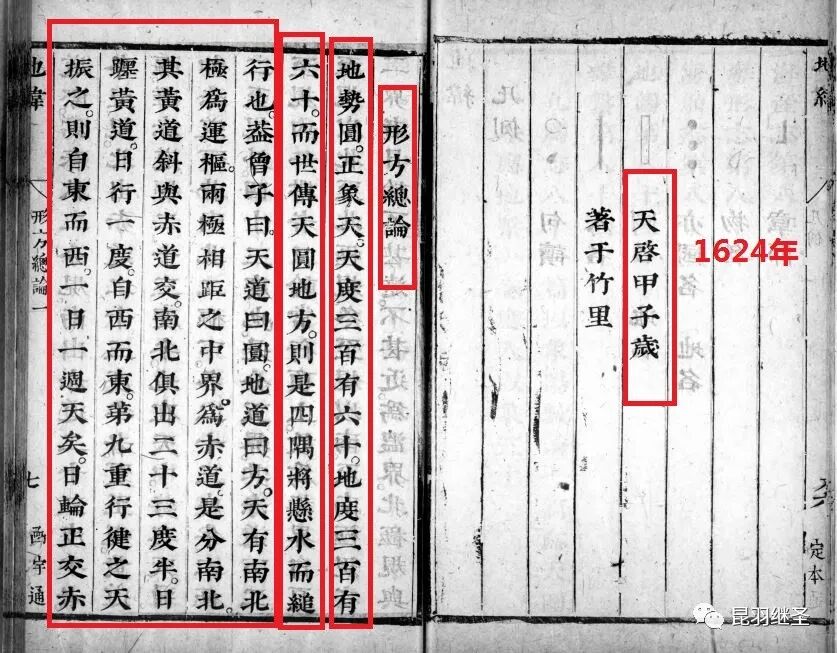 定本
天啓甲子歲
1624年
著于竹里
形方總論
地勢圓。正象天。天度三百有六十。地度三百有
六十。而世傳天圓地方。則是四隅將懸水而縋
行也。葢曾子曰。天道曰圓。地道曰方。天有南北
極爲運樞。兩極相距之中界爲赤道。是分南北。
其黃道斜與赤道交。南北俱出二十三度半。日
躔黃道。日行一度。自西而東。第九重行健之天
振之。則自東而西。一日一週天矣。日輪正交赤
地緯
形方總論一
七
函宇通
昆羽继圣